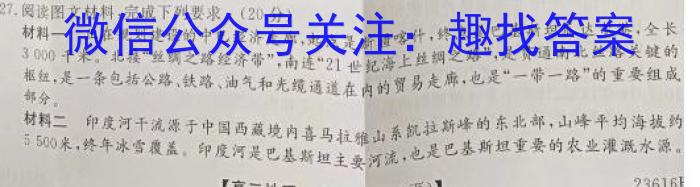 27.阅读图文材料,完成下列要求。(20分)
微信公众号关注：趣找答案
材料一
全长
3 000千米。北接“丝绸之路经济带”,南连“21世纪海上丝绸之路”,是贯通南北丝路关键的
枢纽,是一条包括公路、铁路、油气和光缆通道在内的贸易走廊,也是“一带一路”的重要组成
部分。
材料二 印度河干流源于中国西藏境内喜马拉雅山系凯拉斯峰的东北部,山峰平均海拔约
5 500米,终年冰雪覆盖。印度河是巴基斯坦主要河流,也是巴基斯坦重要的农业灌溉水源。
23616